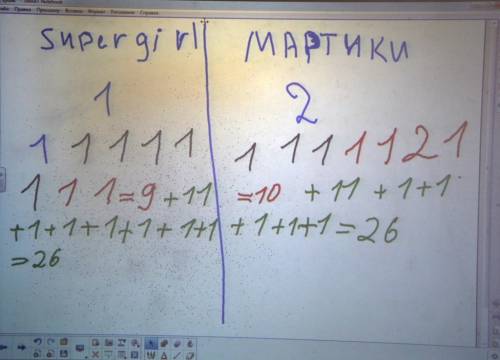 Supergirl
1
1 1 1 1 1
1 1 1 = 9 + 11
+1+1+1+1+1+1
=26
МАРТИКИ
2
1 1 1 1 1 2 1
=10 + 11 + 1+1
+1+1+1=26